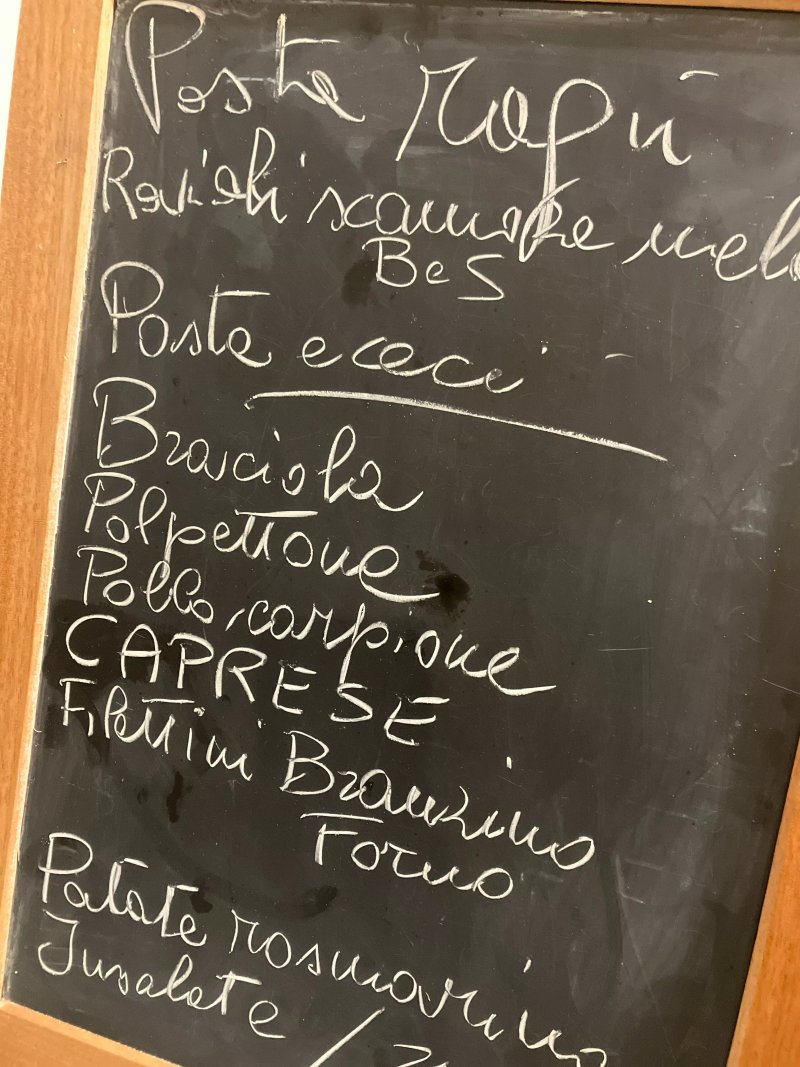 Pasta ragù
Ravioli scamorza mela
BeS
Pasta e ceci
Brasciola
Polpettone
Pollo carpione
CAPRESE
Filettini Branzino
Forno
Patate rosmarino
Insalate /